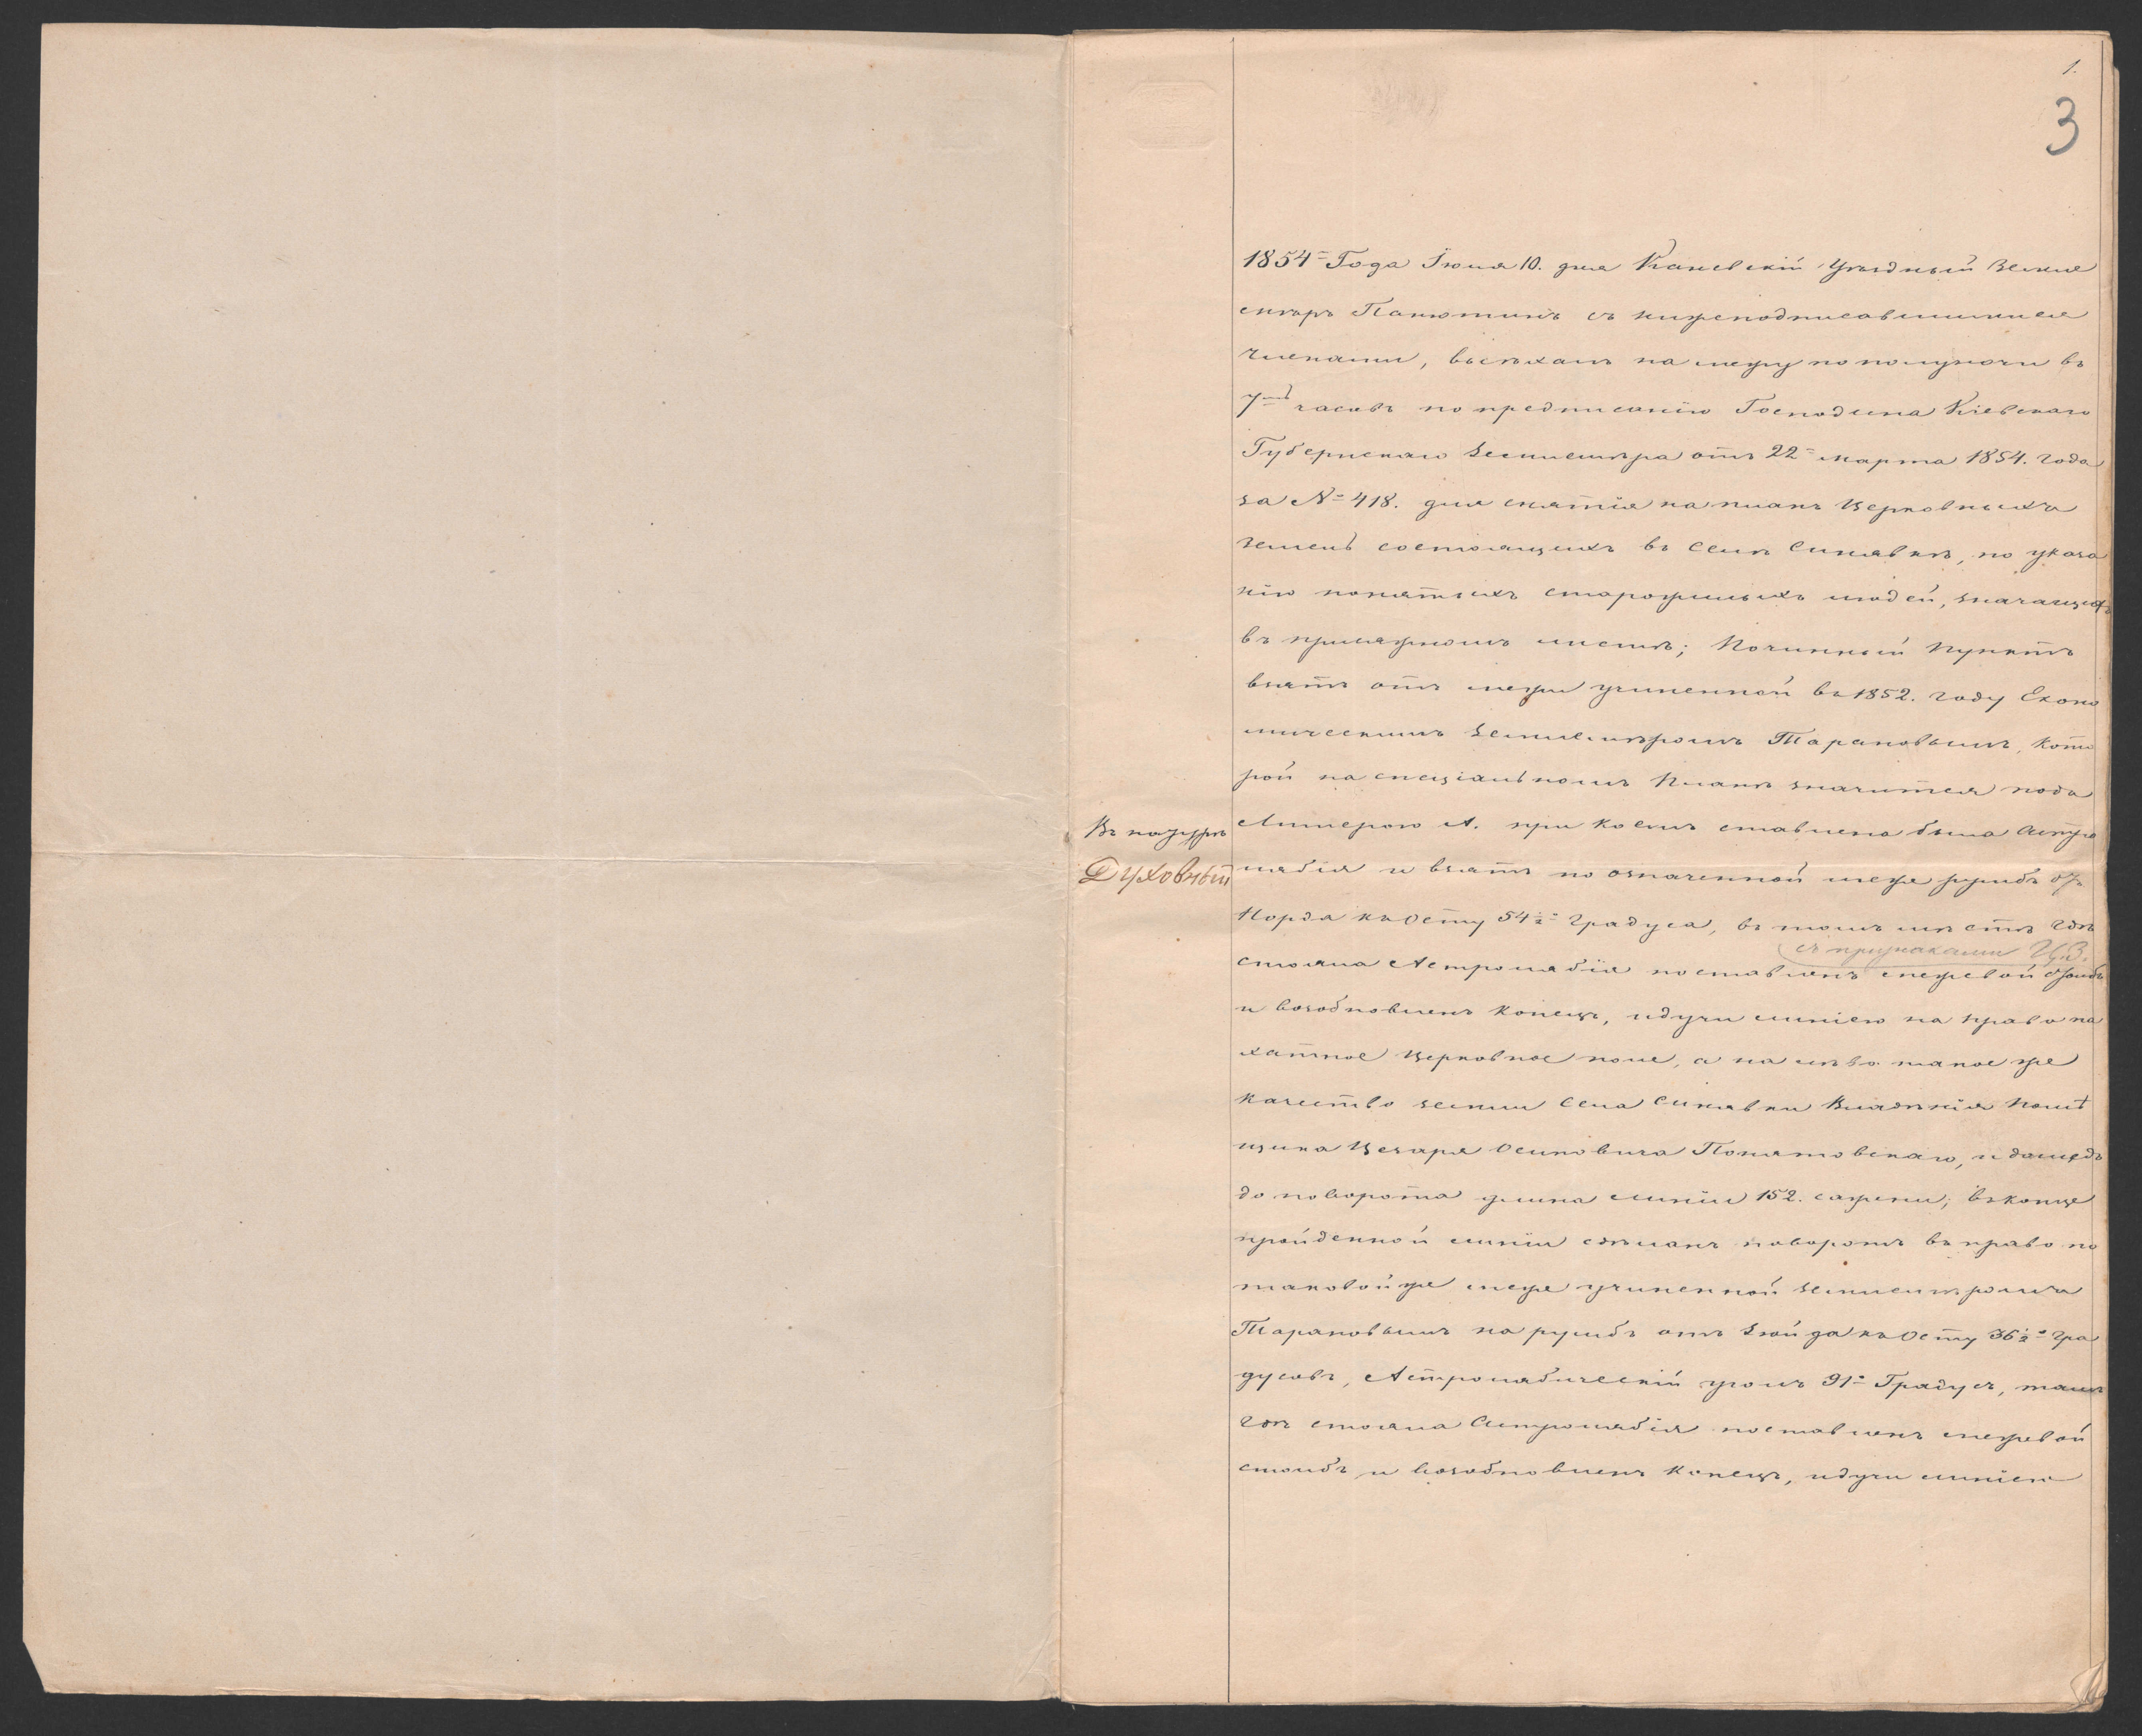 1.
3
1854= Года Іюня 10. дня Каневскій Уѣздный Землѣ
мѣръ Панютинъ съ нижеподписавшимися
членами, выѣхалъ на межу по полуночи въ
7мь часовъ по предписанію Господина Кіевскаго
Губернскаго Землемѣра отъ 22= марта 1854. года
за №= 418. для снятія на планъ Церковныхъ
земель состоящихъ въ Селѣ Синявкѣ, по указа
нію понятыхъ старожилыхъ людей, значащихъ
въ присяжномъ листѣ; Починный Пунктъ
взятъ отъ межи учиненной въ 1852. году Еконо
мическимъ Землемѣромъ Тарановымъ, Кото
рой на спеціальномъ Планѣ значится подъ
Литерою А. при Коемъ ставлена была Астро
Въ натурѣ
Духовный
лябія и взятъ по означенной межѣ румбъ отъ
Норда къ Осту 54½° Градуса, въ томъ мѣстѣ гдѣ
съ признаками Ц.З.
стояла Астролябія поставленъ межевой столбъ
и возобновленъ Копецъ, идучи линіею на право па
хатное Церковное поле, а на лѣво такое же
качество земли Села Синявки Владѣнія Помѣ
щика Цезаря Осиповича Понятовскаго, и дошедъ
до поворота длина линіи 152. сажени; въ концѣ
пройденной линіи сдѣланъ поворотъ въ право по
таковой же межѣ учиненной Землемѣромъ
Тарановымъ на румбъ отъ Зюйда къ Осту 36½° Гра
дусовъ, Астролябическій уголъ 91° Градусъ, тамъ
гдѣ стояла Астролябія поставленъ межевой
столбъ и возобновленъ Копецъ, идучи линіею